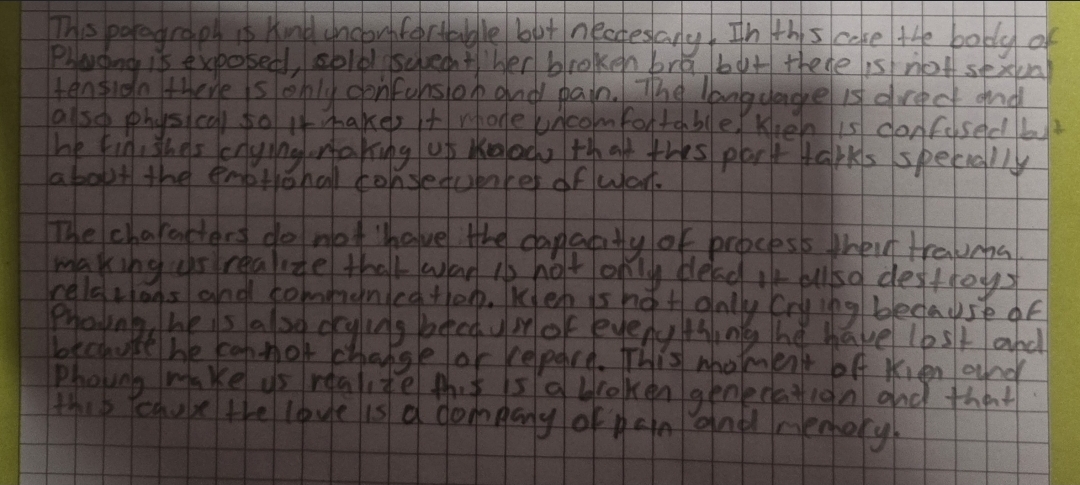 This paragraph is kind uncomfortable but neccesary. In this case the body of
Phuong is exposed, cold sweat, her broken bra but there is not sexual
tension there is only confunsion and pain. The language is direct and
also physical so it makes it more uncomfortable. Kien is confused but
he finishes crying making us know that this part talks specially
about the emotional consecuences of war.
The characters do not have the capacity of process their trauma
making us realize that war is not only dead it also destroys
relations and communication. Kien is not only crying because of
Phoung, he is also crying because of everything he have lost and
because he cannot change or repare. This moment of Kien and
Phoung make us realize this is a broken generation and that
this the love is a company of pain and memory.